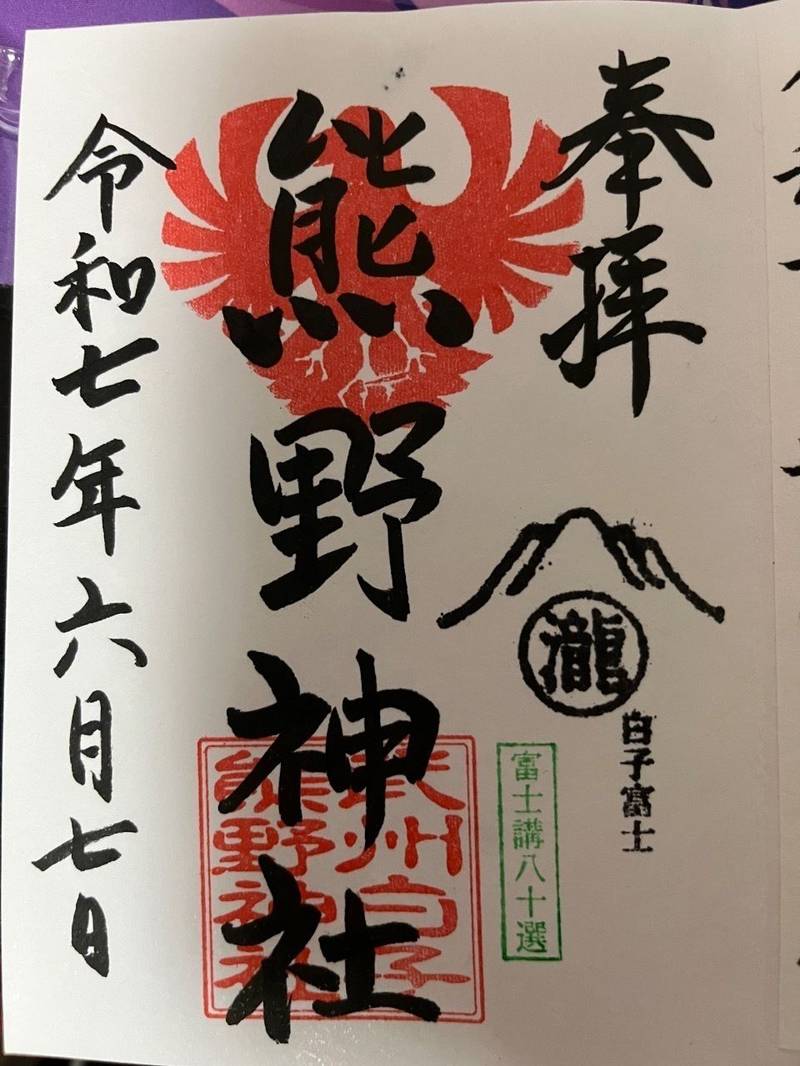 奉拝
瀧
白子富士
富士講八十選
熊野神社
武州白子
熊野神社
令和七年六月七日